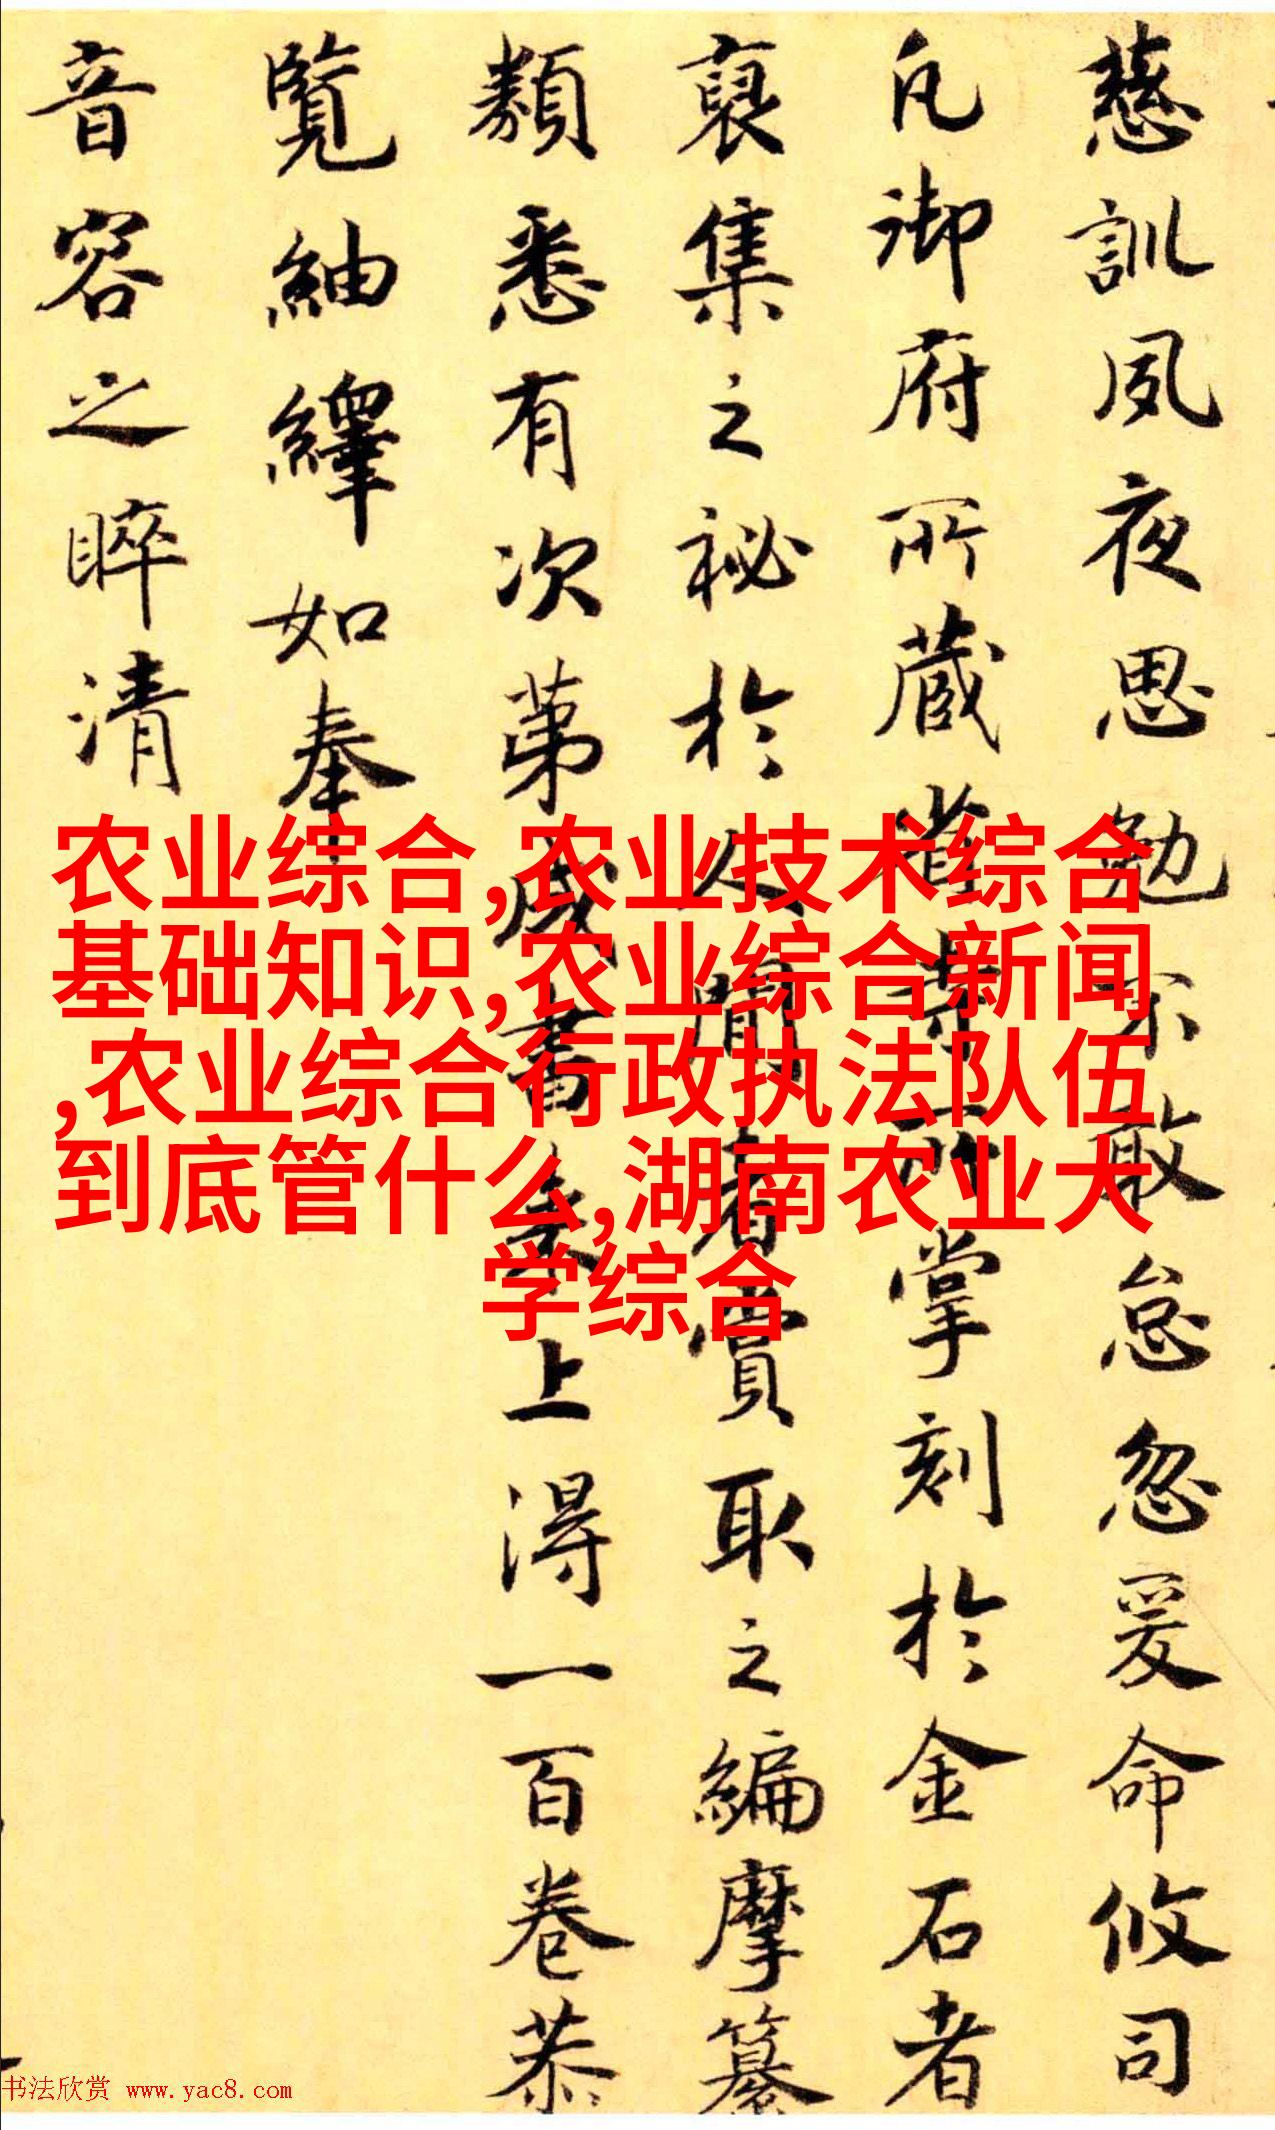 慈訓夙夜思勉不敢怠忽爰命攸司
凡御府所藏省寺所掌刻於金石者
裒集之祕於人間者賞取之編摩纂
類悉有次第成書来上淂一百卷恭
覽紬繹如奉
音容之睟清
农业综合,农业技术综合
基础知识,农业综合新闻
,农业综合行政执法队伍
到底管什么,湖南农业大
学综合
书法欣赏 www.yac8.com